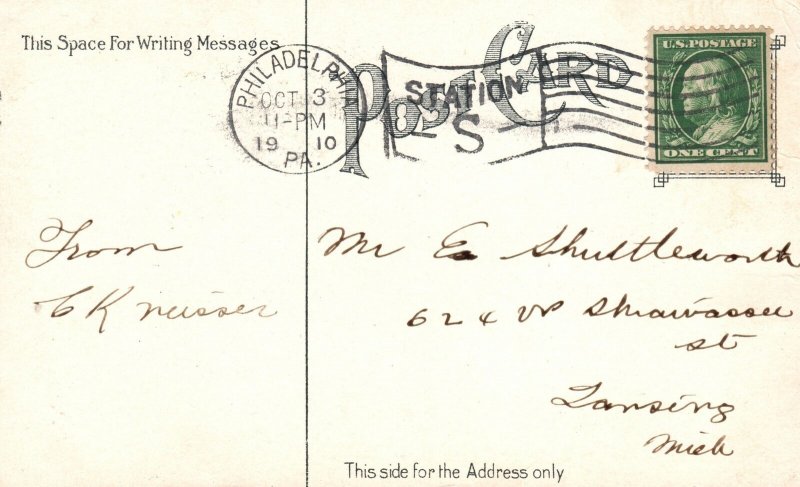 This Space For Writing Messages
POST CARD
PHILADELPHIA
OCT 3
11-PM
1910
PA.
STATION
S
U.S. POSTAGE
ONE CENT
From
Mr E. Shuttleworth
624 W Shiawassee
st
Lansing
Mich
This side for the Address only